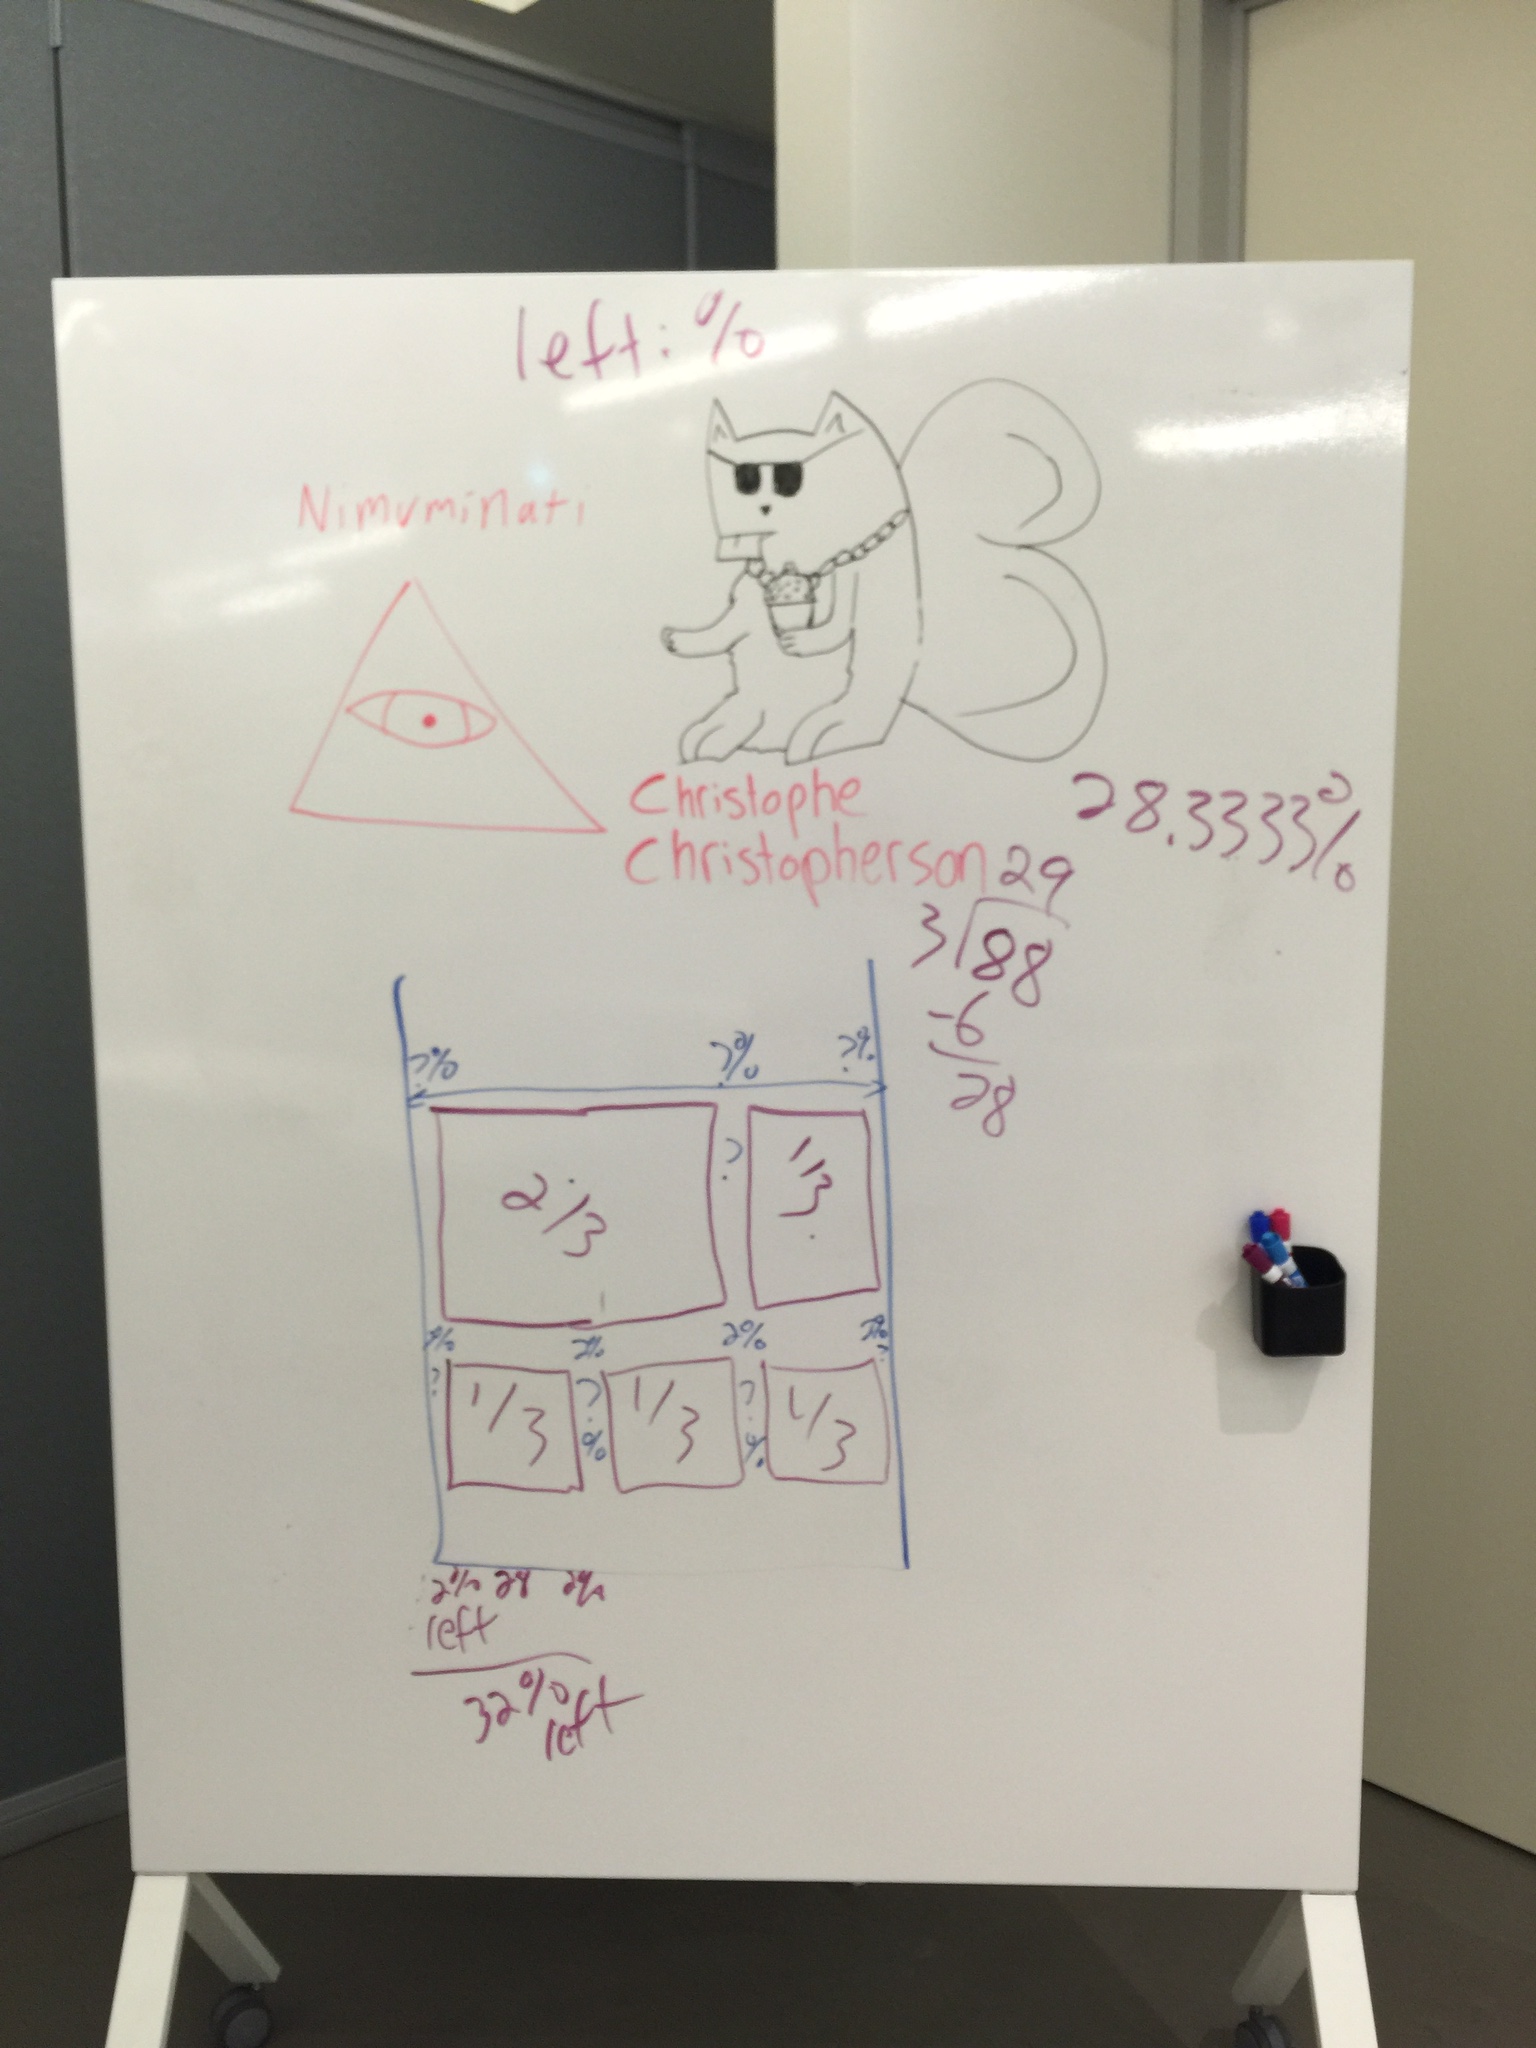 left: %
Nimuminati
Christophe
Christopherson
28.3333%
29
3 88
-6
28
?% ?% ?%
2/3 ? 1/3
2% 2% 2%
1/3 ?% 1/3 ?% 1/3
2% 28
left
32%
left